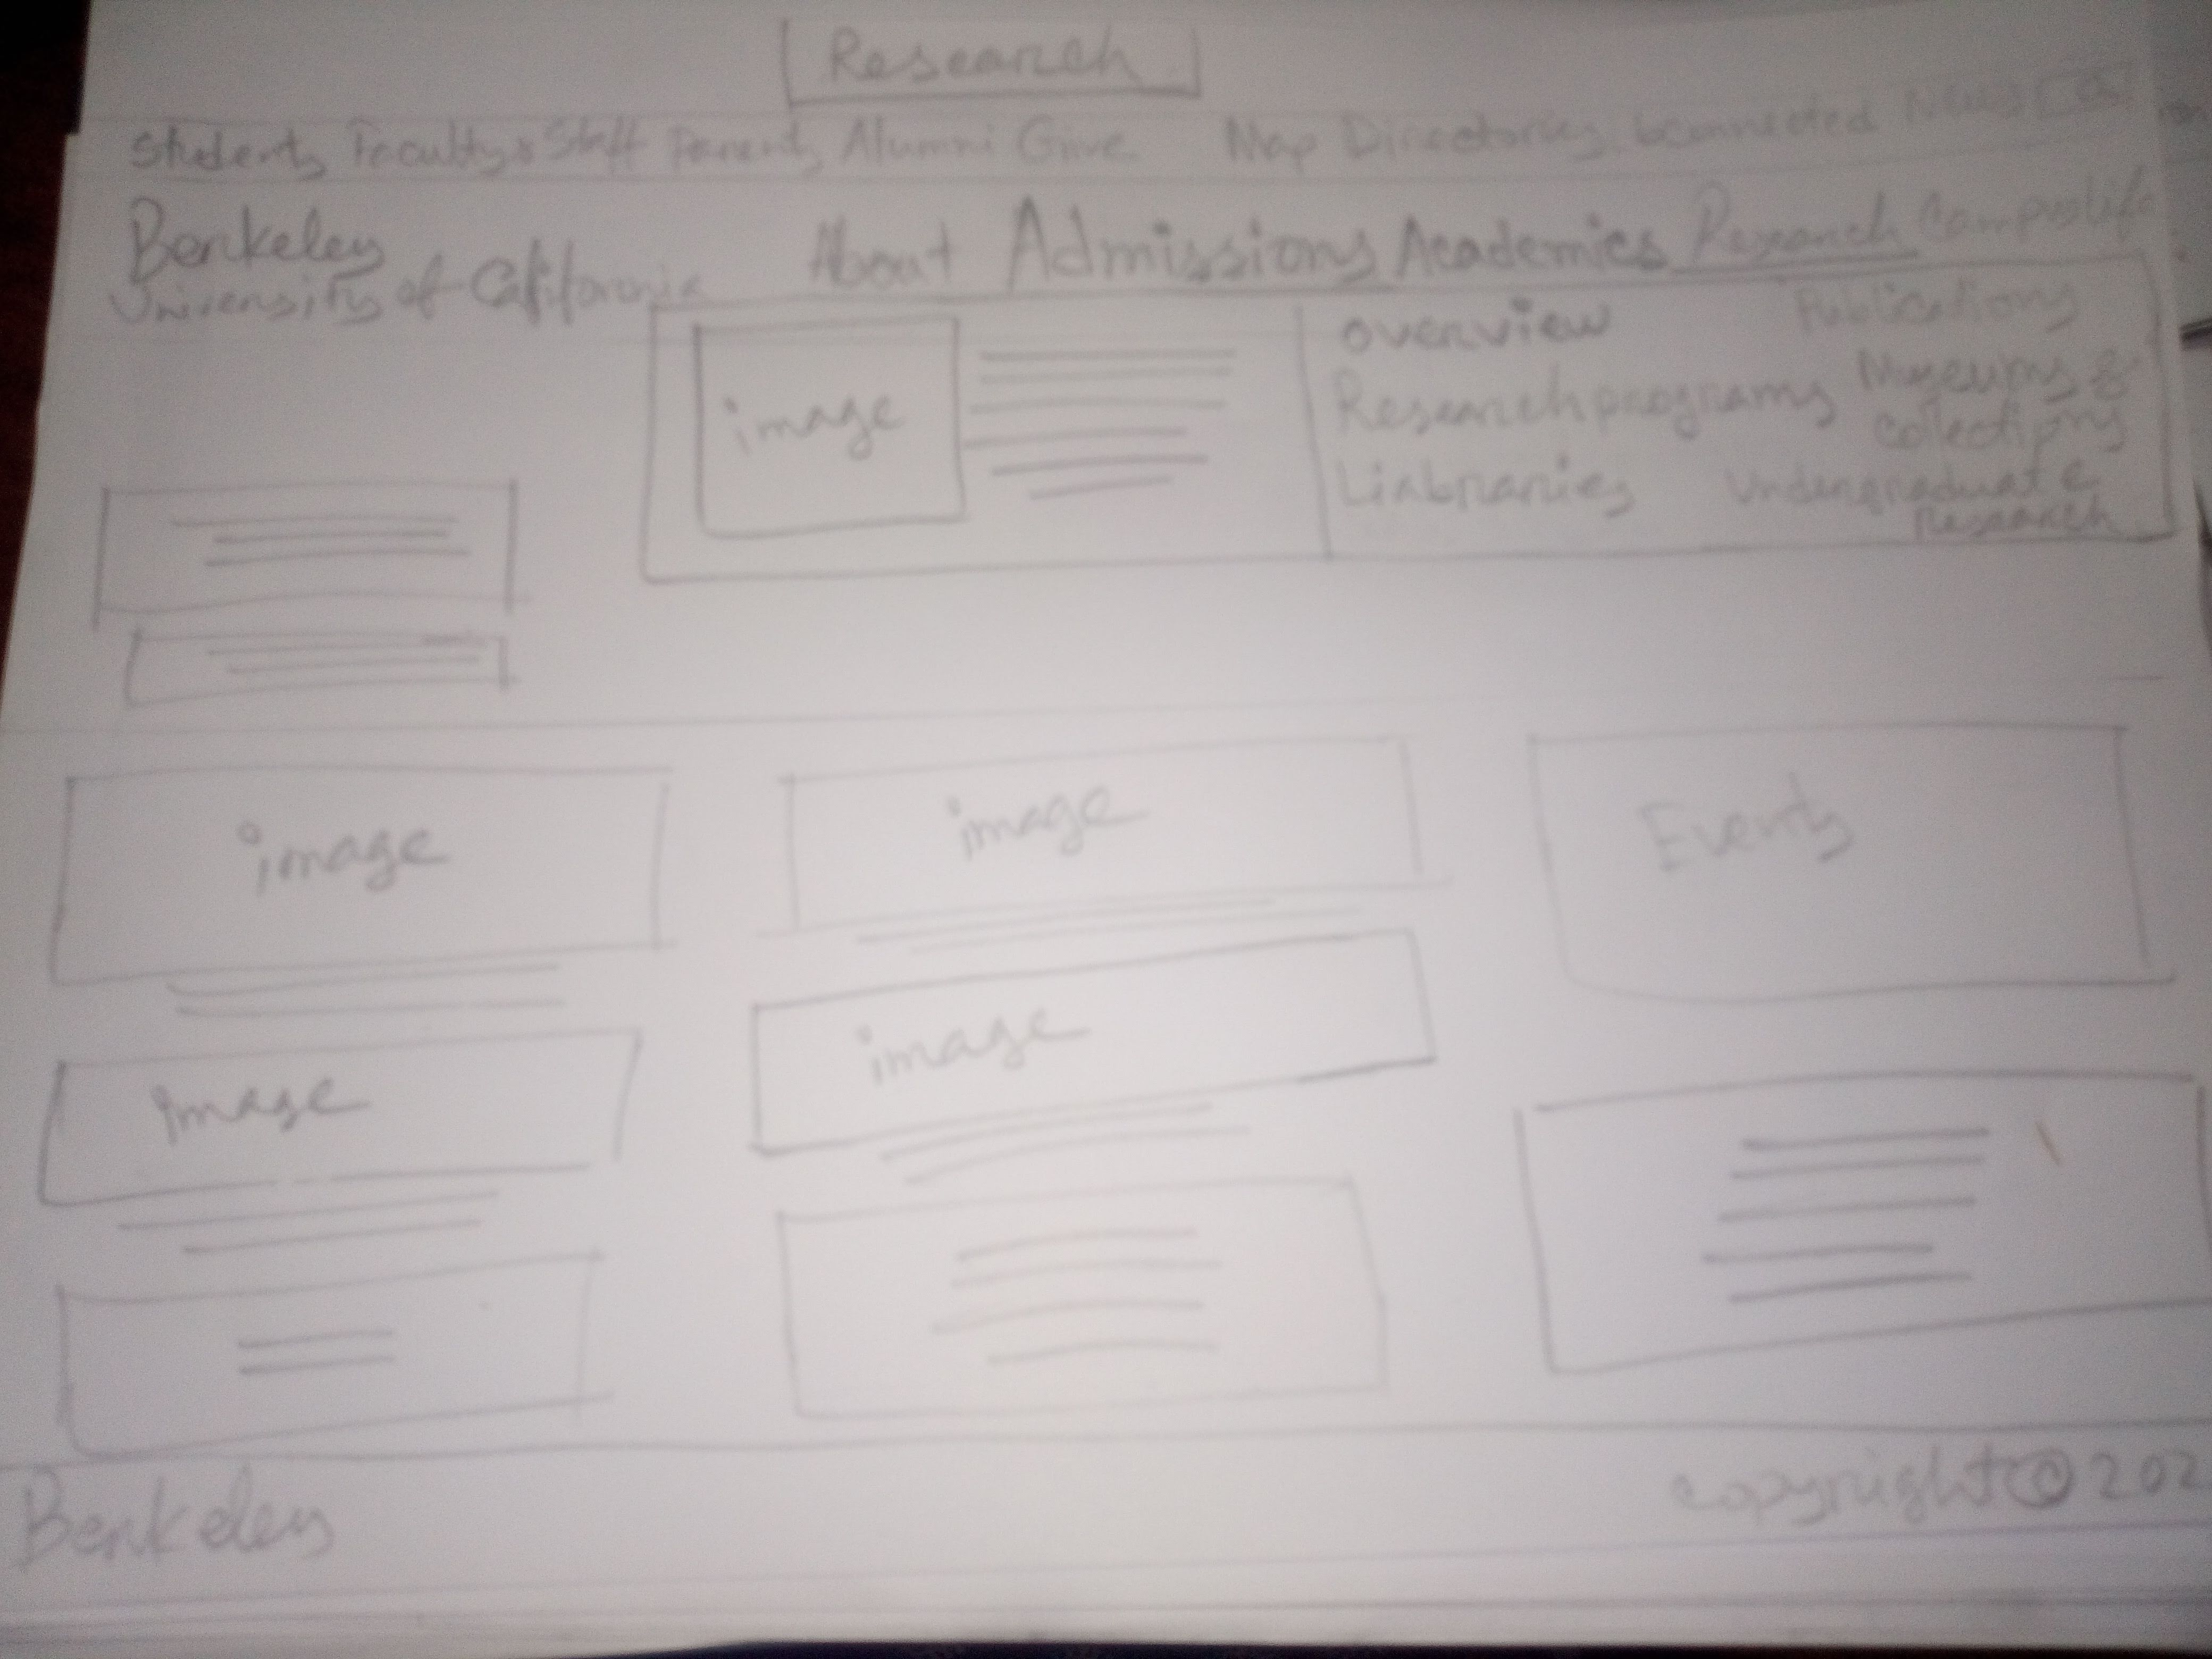 Research
Students Faculty & Staff Parents Alumni Give Map Directories bconnected News
Berkeley
University of California
About Admissions Academics Research Campuslife
image
overview Publications
Research programs Museums &
Colections
Liabraries Undergraduate
Research
image image Events
image image
Berkeley copyright © 202